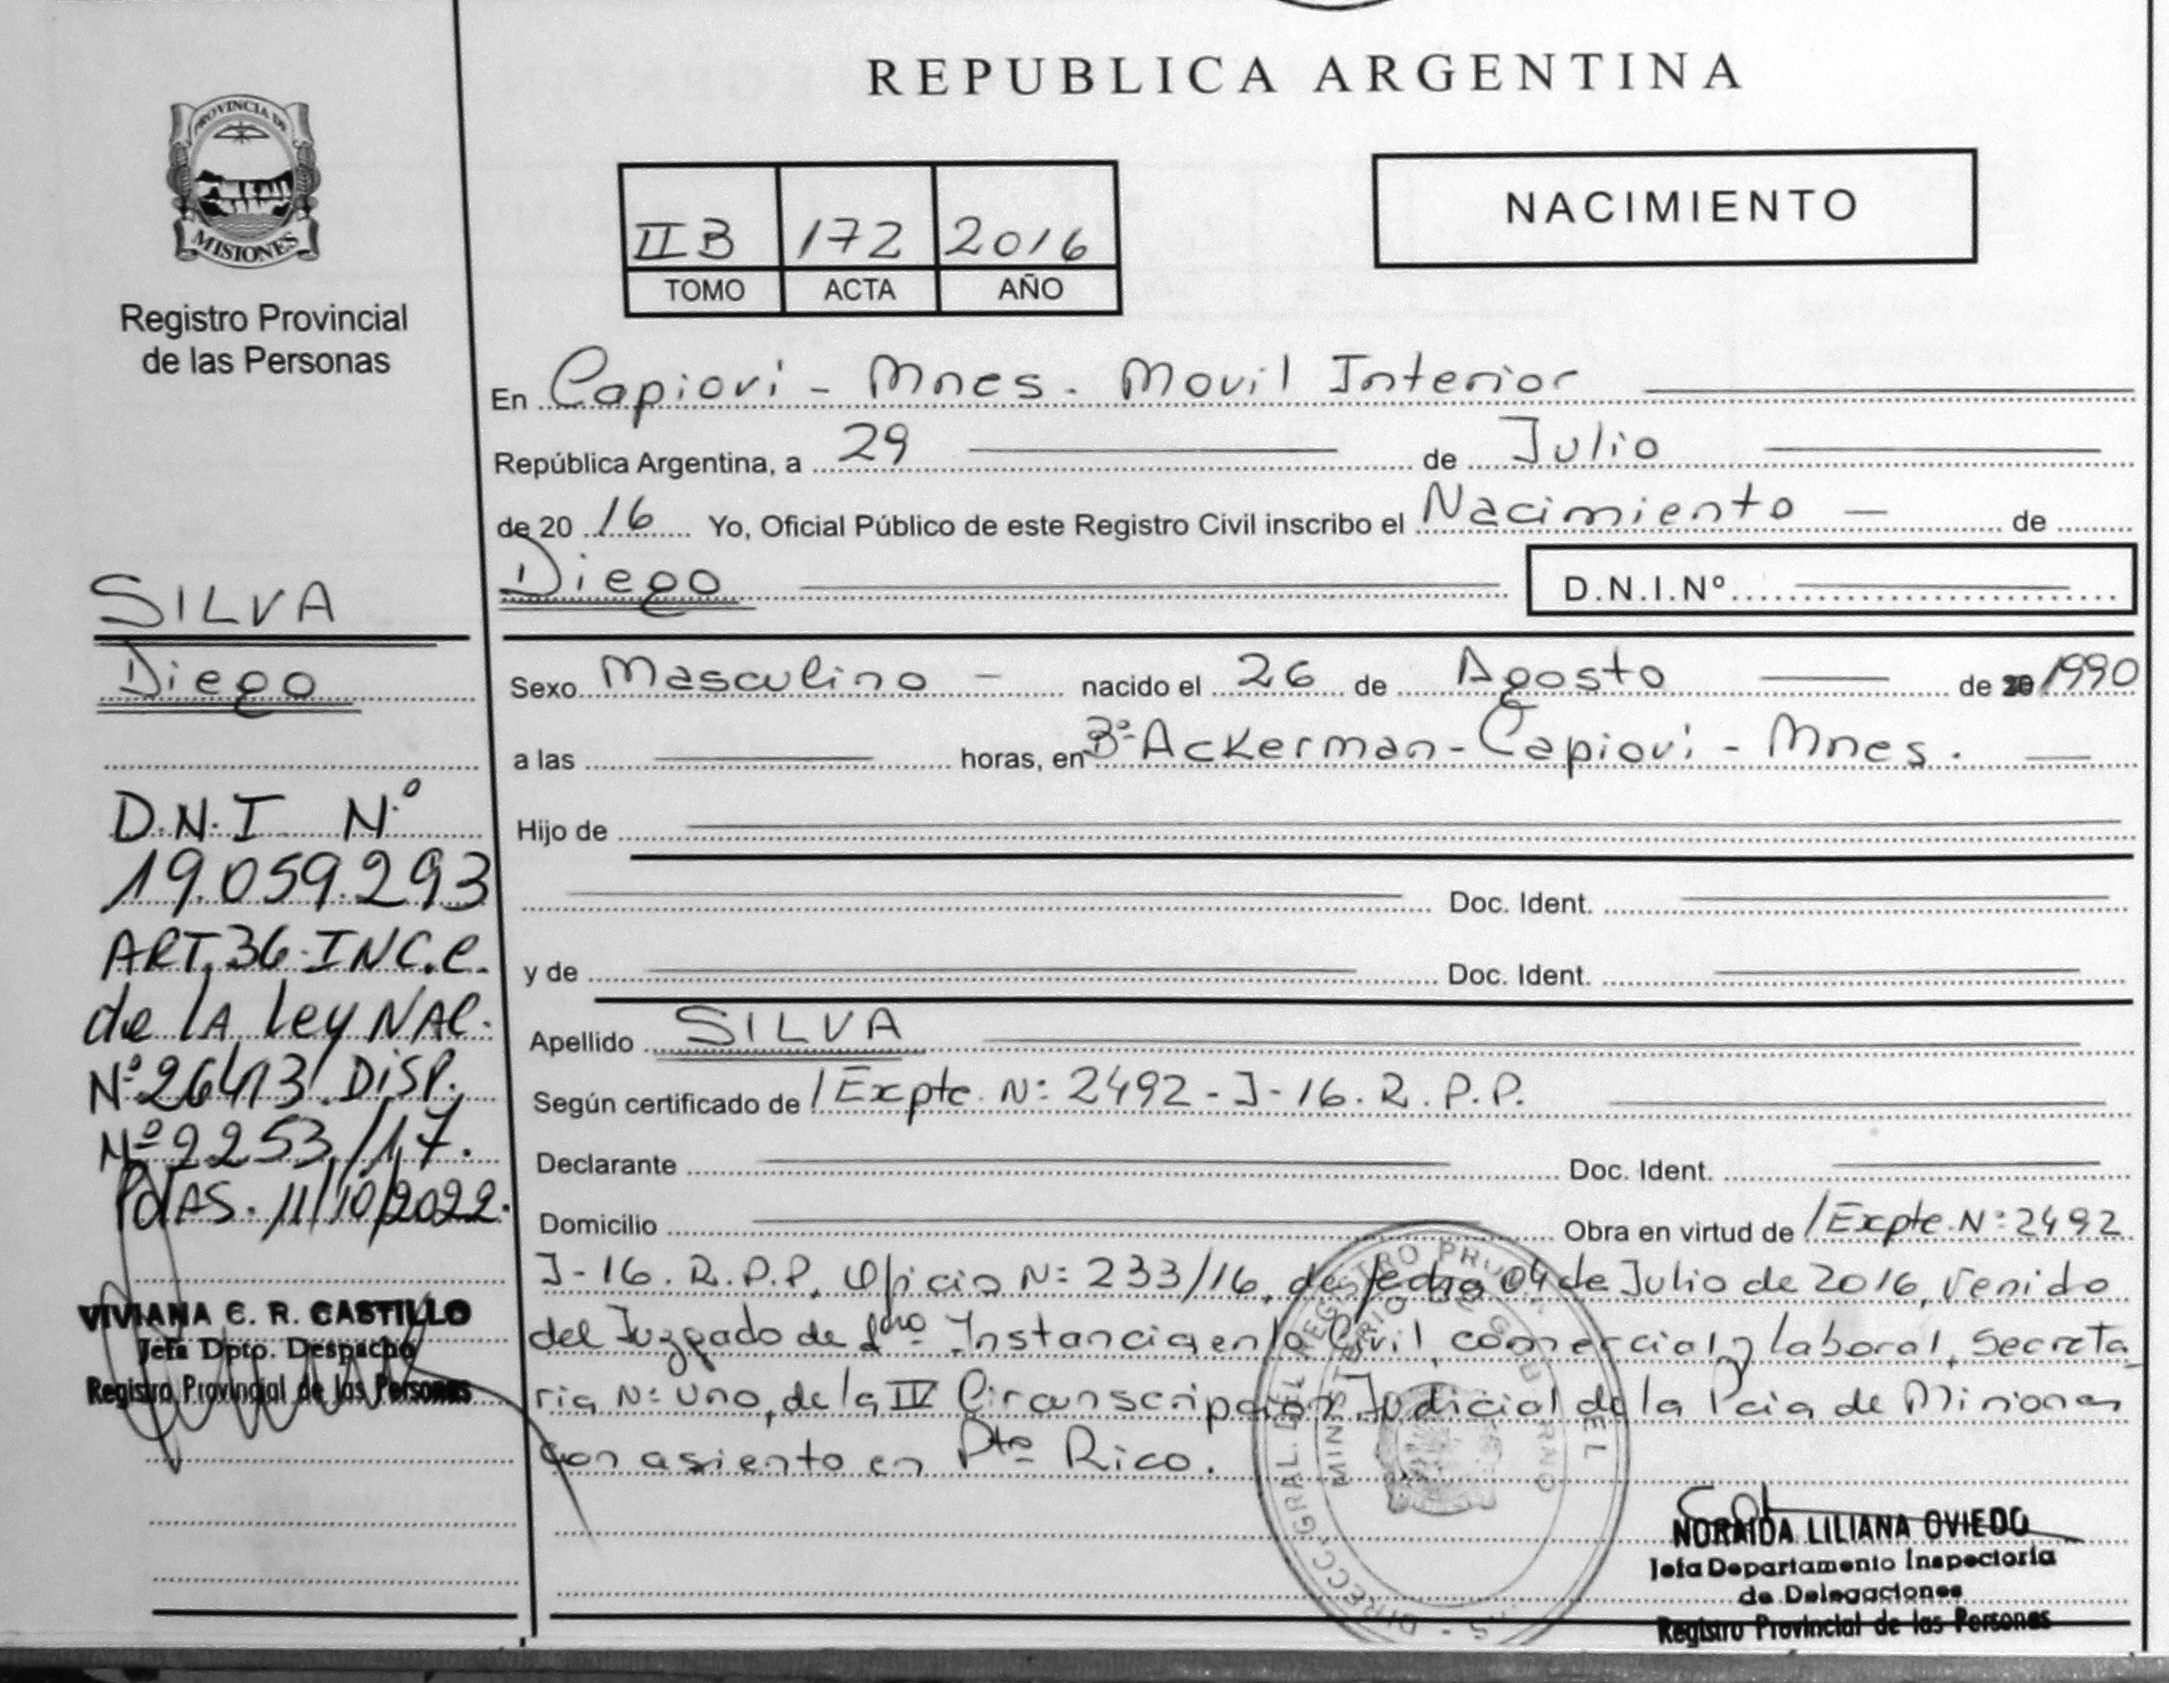 REPUBLICA ARGENTINA
PROVINCIA DE
MISIONES
Registro Provincial
de las Personas
NACIMIENTO
II B 172 2016
TOMO ACTA AÑO
En Capioví - Mnes. Movil Interior
República Argentina, a 29 de Julio
de 20 16 Yo, Oficial Público de este Registro Civil inscribo el Nacimiento de
Diego D.N.I.Nº
SILVA
Diego
D.N.I Nº
19.059.293
ART. 36 INC. C.
de LA Ley NAC.
Nº 26413/ DISP.
Nº 2253/17.
PdAS. 11/10/2022.
VIVIANA C. R. CASTILLO
Jefa Dpto. Despacho
Registro Provincial de las Personas
Sexo Masculino - nacido el 26 de Agosto de 1990
a las horas, en Bº Ackerman - Capioví - Mnes.
Hijo de
Doc. Ident.
y de Doc. Ident.
Apellido SILVA
Según certificado de / Expte. Nº 2492 - J - 16. R. P. P.
Declarante Doc. Ident.
Domicilio Obra en virtud de / Expte. Nº 2492
J - 16. R. P. P, Oficio Nº 233/16, de fecha 04 de Julio de 2016, venido
del Juzgado de Instancia en lo Civil, comercial y laboral, Secreta
ria Nº Uno, de la IV Circunscripcion Judicial de la Pcia de Misiones
con asiento en Pto Rico.
DIRECC. GRAL. DEL REGISTRO
MINISTERIO DE GOBIERNO
NORAIDA LILIANA OVIEDO
Jefa Departamento Inspectoría
de Delegaciones
Registro Provincial de las Personas